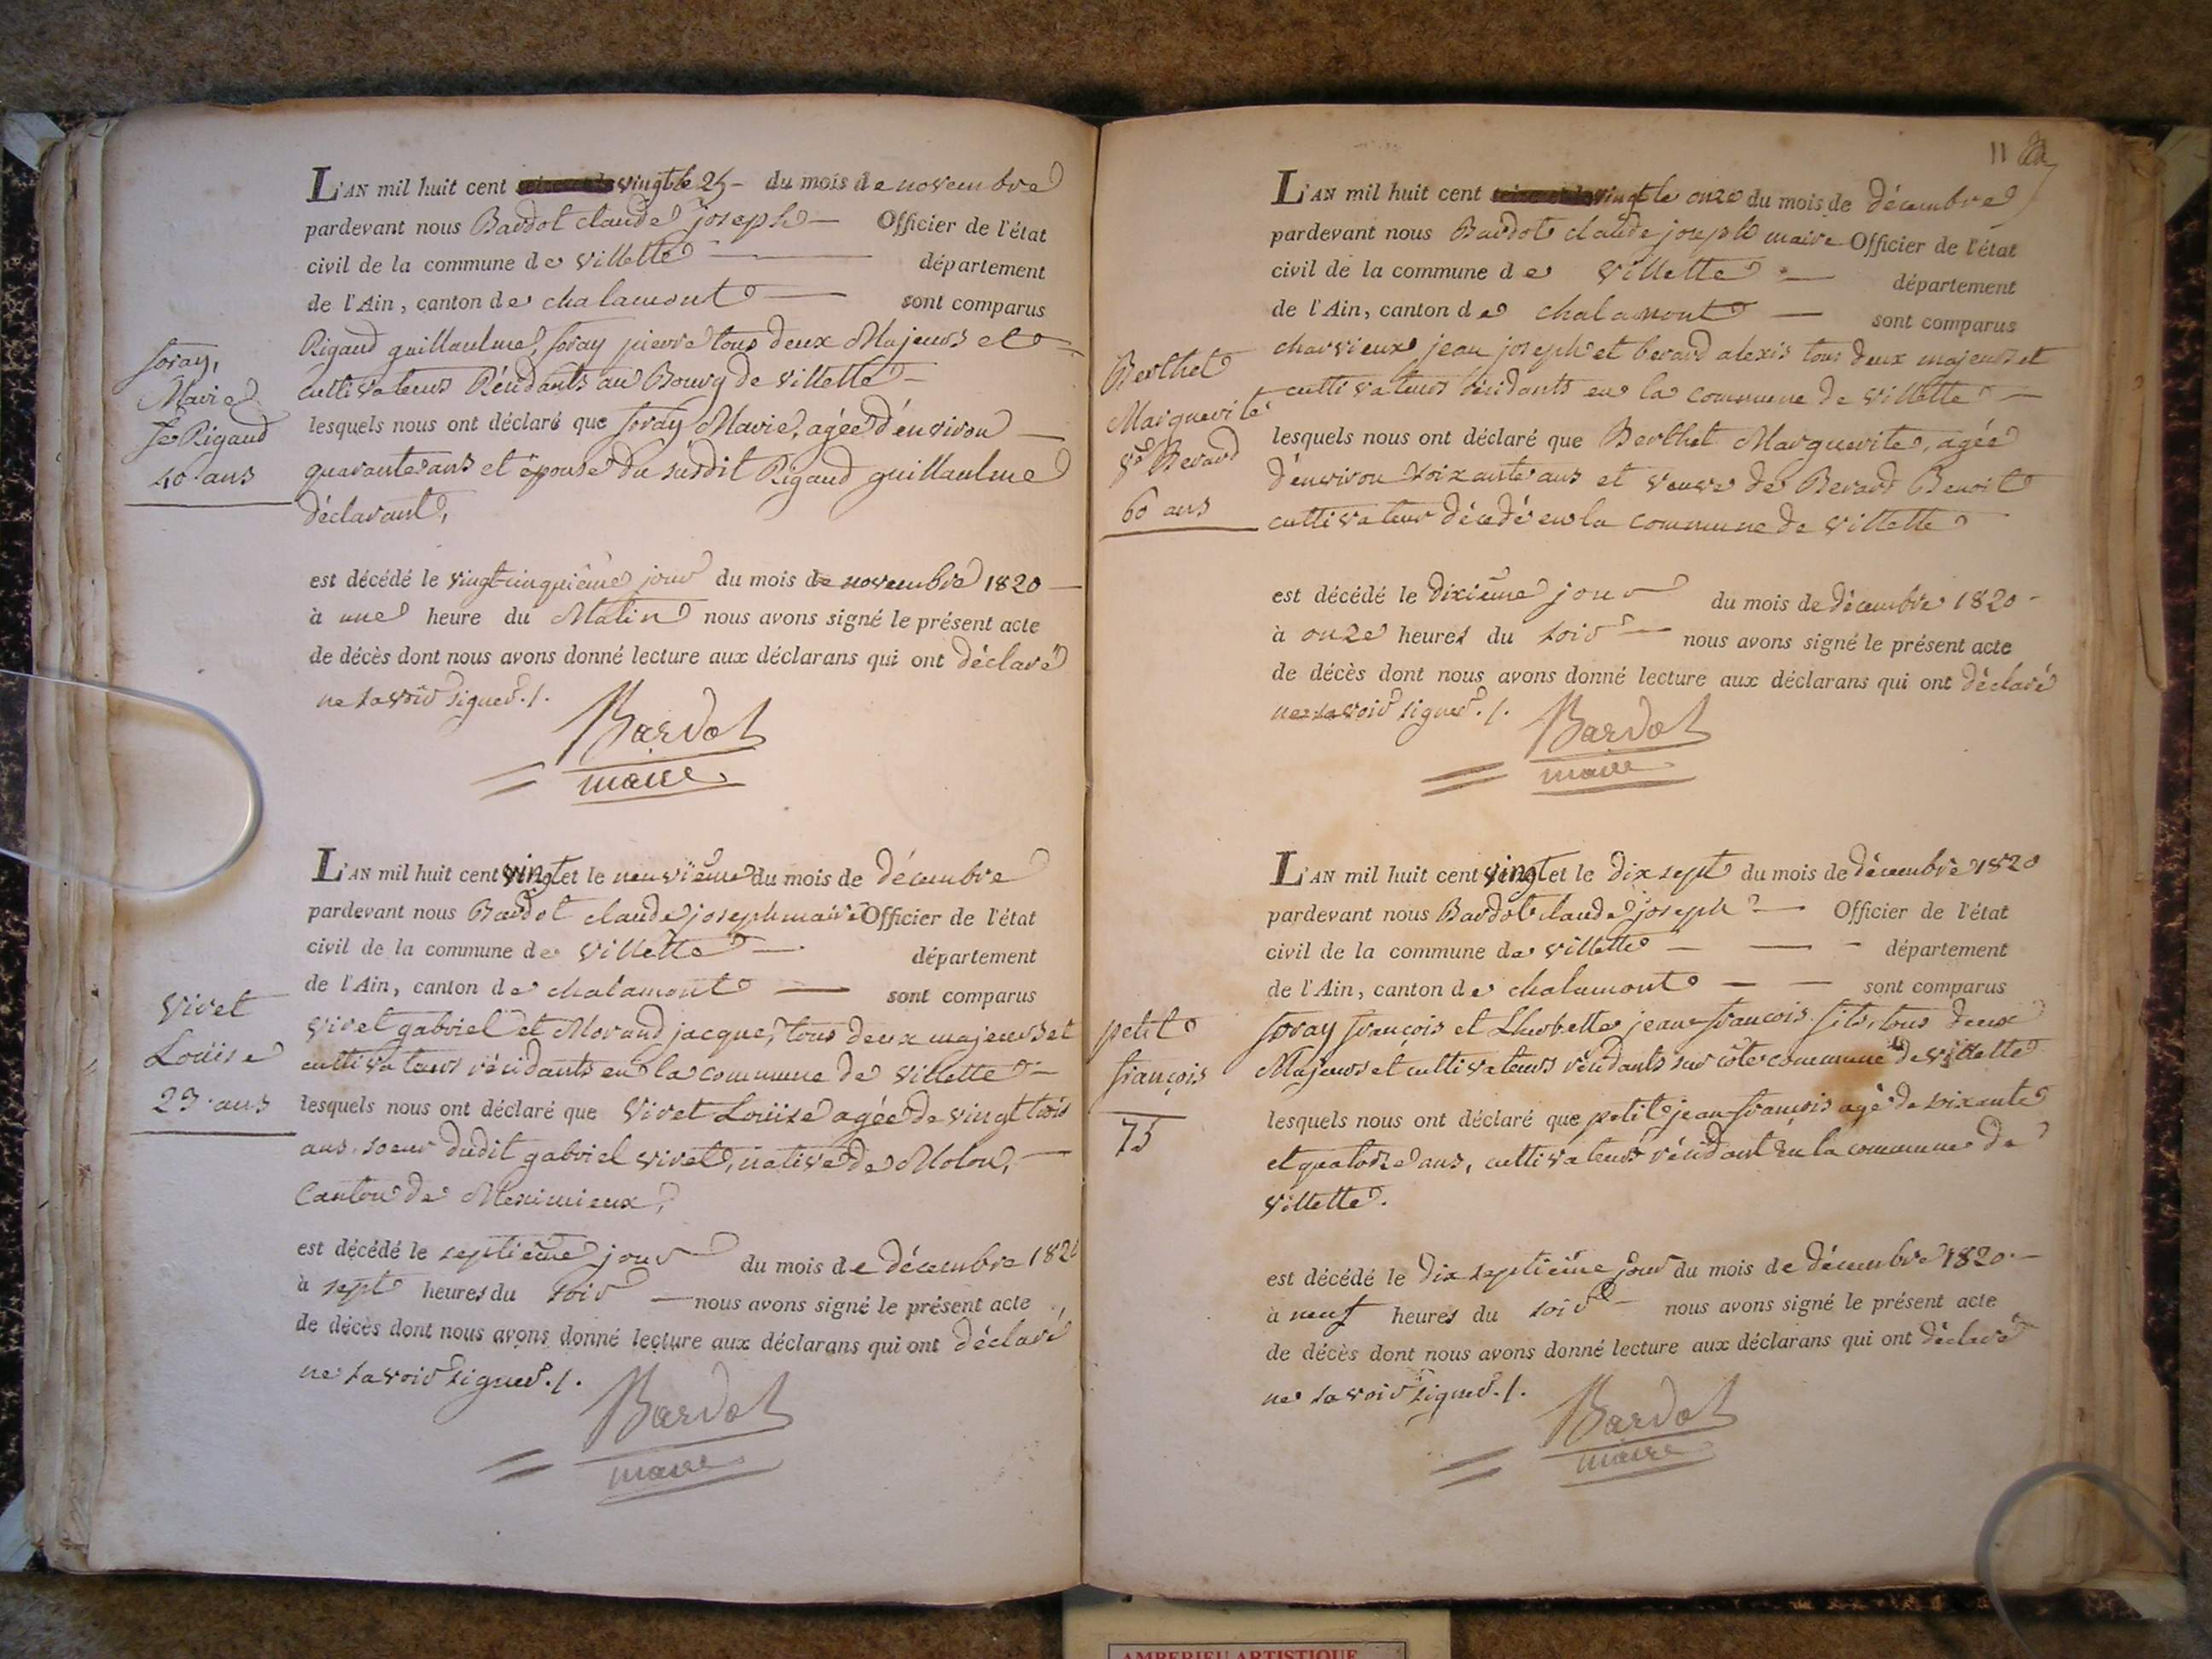 L'AN mil huit cent vingt le 25 - du mois de novembre
pardevant nous Bardot claude joseph — Officier de l'état
civil de la commune de villette — département
de l'Ain, canton de chalamont — sont comparus
Rigaud guillaulme, foray pierre tous deux Majeurs et
cultivateurs Résidants au Bourg de villette —
lesquels nous ont déclaré que foray Marie, agée d'énviron —
quarante ans et épouse du susdit Rigaud guillaulme
déclarant,
foray,
Marie
fe Rigaud
40 ans
est décédé le vingt-cinquième jour du mois de novembre 1820 —
à une heure du Matin nous avons signé le présent acte
de décès dont nous avons donné lecture aux déclarans qui ont déclaré
ne savoir signer ./.
Bardot
maire
L'AN mil huit cent vingt et le neuvième du mois de décembre
pardevant nous Bardot claude joseph maire Officier de l'état
civil de la commune de villette — département
de l'Ain, canton de chalamont — sont comparus
vivet gabriel et Morand jacque, tous deux majeurs et
cultivateurs résidants en la commune de villette —
lesquels nous ont déclaré que vivet Loüise agée de vingt trois
ans, soeur dudit gabriel vivet, native de Molon, —
Canton de Meximieux,
vivet
Loüise
23 ans
est décédé le septième jour du mois de décembre 1820
à sept heures du soir — nous avons signé le présent acte
de décès dont nous avons donné lecture aux déclarans qui ont déclaré
ne savoir signer ./.
Bardot
maire
11
L'AN mil huit cent vingt le onze du mois de décembre
pardevant nous Bardot claude joseph maire Officier de l'état
civil de la commune de villette — département
de l'Ain, canton de chalamont — sont comparus
charvieux jean joseph et berard alexis tous deux majeurs et
cultivateurs résidants en la commune de villette —
lesquels nous ont déclaré que Berthet Marguerite, agée
d'énviron soixante ans et veuve de Berard Benoit
cultivateur décédé en la commune de villette
Berthet
Marguerite
ve Berard
60 ans
est décédé le dixième jour du mois de décembre 1820 -
à onze heures du soir — nous avons signé le présent acte
de décès dont nous avons donné lecture aux déclarans qui ont déclaré
ne savoir signer ./.
Bardot
maire
L'AN mil huit cent vingt et le dix sept du mois de décembre 1820
pardevant nous Bardot claude joseph — Officier de l'état
civil de la commune de villette — — - département
de l'Ain, canton de chalamont — — sont comparus
foray françois et Lherbette jean françois fils, tous deux
Majeurs et cultivateurs résidants sur côte commune de villette
lesquels nous ont déclaré que petit jean françois agé de soixante
et quatorze ans, cultivateur résidant en la commune de
villette.
petit
françois
75
est décédé le dix septième jour du mois de décembre 1820 —
à neuf heures du soir — nous avons signé le présent acte
de décès dont nous avons donné lecture aux déclarans qui ont déclaré
ne savoir signer ./.
Bardot
maire
AMBERIEU ARTISTIQUE